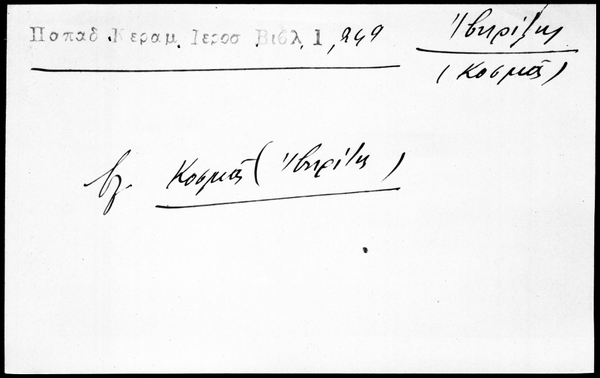 Παπαδ. Κεραμ. Ιεροσ Βιβλ 1, 249
Ἰβηρίτης
(Κοσμᾶς)
βλ. Κοσμᾶς (Ἰβηρίτης)